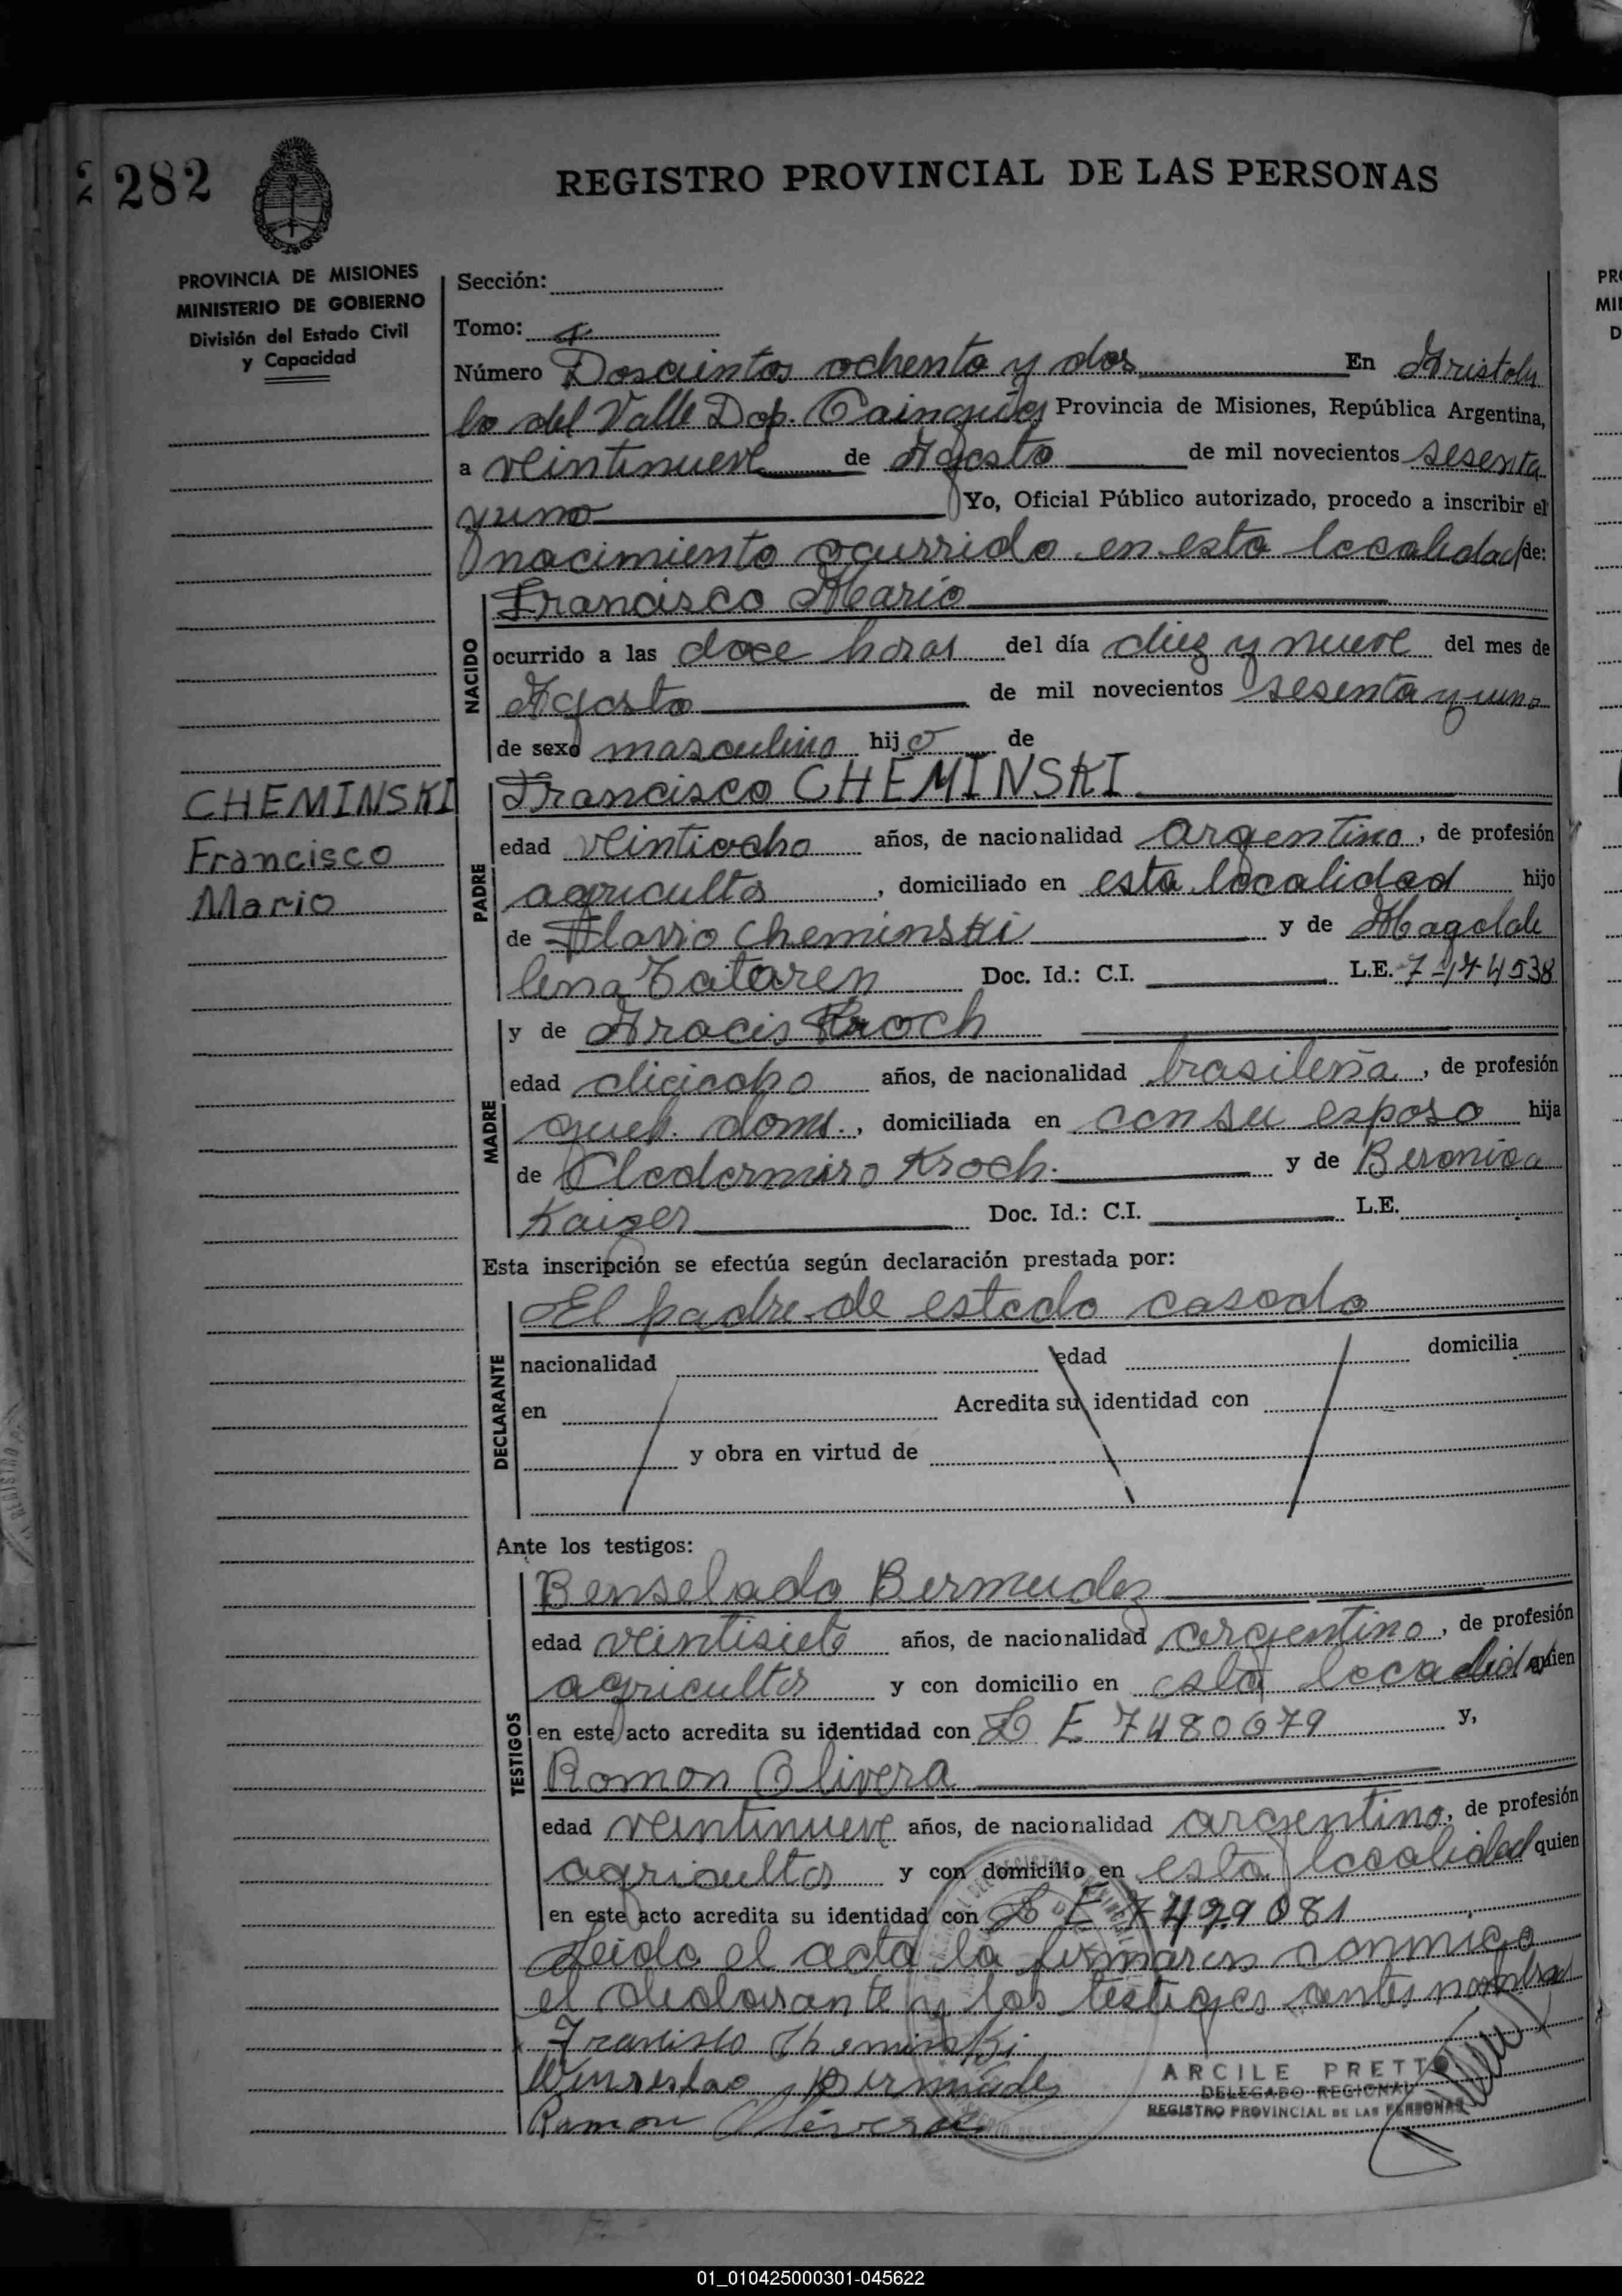 282
REGISTRO PROVINCIAL DE LAS PERSONAS
PROVINCIA DE MISIONES
MINISTERIO DE GOBIERNO
División del Estado Civil
y Capacidad
Sección:
Tomo:
Número Doscientos ochenta y dos En Aristobu
lo del Valle Dep. Cainguás Provincia de Misiones, República Argentina,
a veintinueve de Agosto de mil novecientos sesenta
y uno Yo, Oficial Público autorizado, procedo a inscribir el
nacimiento ocurrido en esta localidad de:
NACIDO
Francisco Mario
ocurrido a las doce horas del día diez y nueve del mes de
Agosto de mil novecientos sesenta y uno
de sexo masculino hijo de
CHEMINSKI
Francisco
Mario
PADRE
Francisco CHEMINSKI
edad veintiocho años, de nacionalidad argentino, de profesión
agricultor, domiciliado en esta localidad hijo
de Flavio Cheminski y de Magdale
lena Tataren Doc. Id.: C.I. L.E. 7-174538
MADRE
y de Aracis Kroch
edad dieciocho años, de nacionalidad brasileña, de profesión
queh. doms., domiciliada en con su esposo hija
de Clodormiro Kroch. y de Beronica
Kaizer Doc. Id.: C.I. L.E.
Esta inscripción se efectúa según declaración prestada por:
DECLARANTE
El padre de estado casado
nacionalidad edad domicilia
en Acredita su identidad con
y obra en virtud de
Ante los testigos:
TESTIGOS
Benselado Bermudez
edad veintisiete años, de nacionalidad argentino, de profesión
agricultor y con domicilio en esta localidad quien
en este acto acredita su identidad con L E 7480679 y,
Ramon Olivera
edad veintinueve años, de nacionalidad argentino, de profesión
agricultor y con domicilio en esta localidad quien
en este acto acredita su identidad con L E 7429081
Leida el acta la firmaron conmigo
el declarante y los testigos antes nombra
Francisco Cheminski
Wenseslao Bermudes
Ramon Olivera
ARCILE PRETTO
DELEGADO REGIONAL
REGISTRO PROVINCIAL DE LAS PERSONAS
01_010425000301-045622